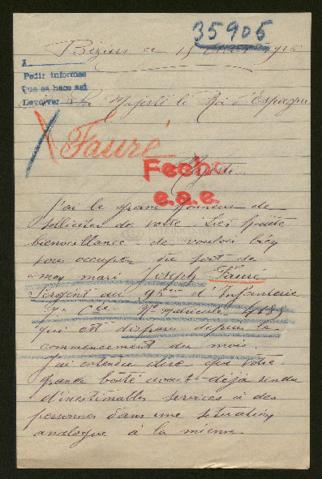 35905
Béziers ce 15
A
Pedir informes
Que se hace así
Sa Majesté le Roi d'Espagne
Fauré
Fecho
e.a.e.
J'ai le grand honneur de
solliciter de votre très haute
bienveillance de vouloir bien
vous occuper du sort de
mon mari Joseph Fauré
Sergent au 96e d'Infanterie
Cie Nº matricule
qui est disparu depuis le
commencement du mois.
J'ai entendu dire que votre
grande bonté avait déjà rendu
d'inestimables services à des
personnes dans une situation
analogue à la mienne